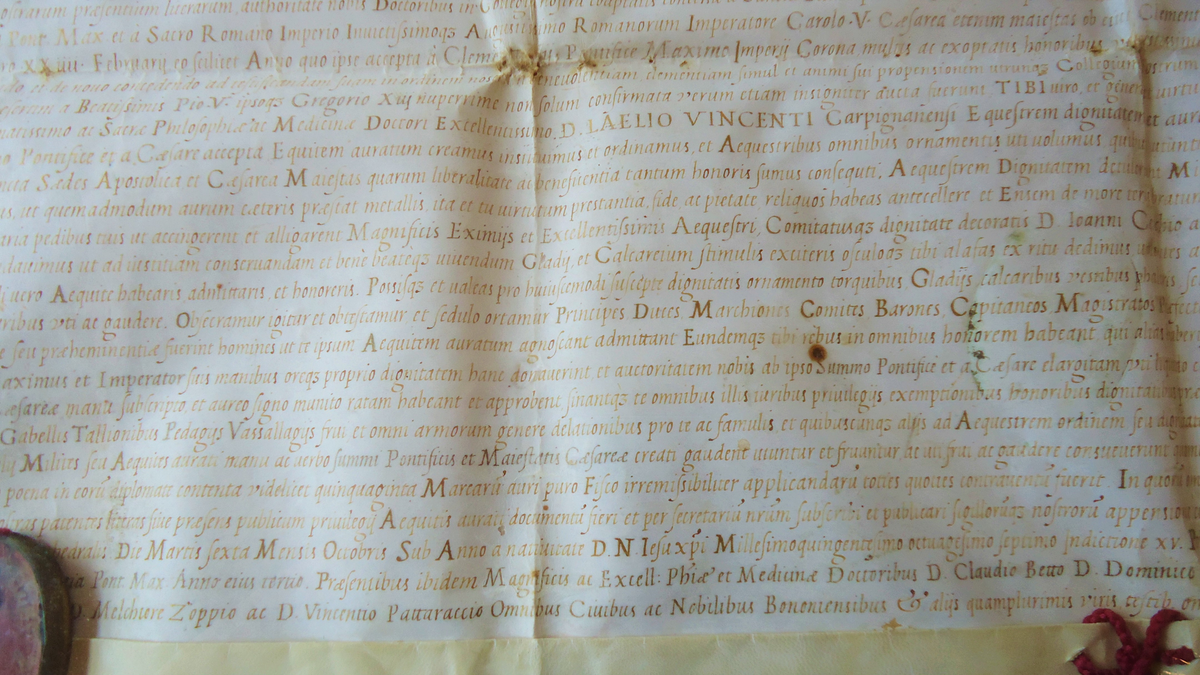 præsentium literarum, authoritate nobis Doctoribus in
Pont. Max. et a Sacro Romano Imperio Invictissimoqz Augustissimo Romanorum Imperatore Carolo. V. Cæsarea etenim maiestas ob eius Clement
XXIIII. Februarij eo scilicet Anno quo ipse accepta a Clemente Pontifice Maximo Imperij Corona multis ac exoptatis honoribus
et de novo concedendo ad benevolentiam, clementiam simul et animi sui propensionem utrunqz Collegium nostrum
a Beatissimis Pio V. ipsoqz Gregorio XIII nuperrime non solum confirmata verum etiam insigniter aucta fuerunt TIBI viro, et genere virtu
ac Sacræ Philosophiæ ac Medicinæ Doctori Excellentissimo, D. LÆLIO VINCENTI Carpignanensi Equestrem dignitatem et aur
Pontifice et a Cæsare accepta Equitem auratum creamus instituimus et ordinamus, et Aequestribus omnibus ornamentis uti volumus
Sædes Apostolica et Cæsarea Maiestas quarum liberalitate ac beneficentia tantum honoris sumus consequti. Aequestrem Dignitatem
ut quemadmodum aurum cæteris præstat metallis, ita et tu virtutum prestantia, fide ac pietate, reliquos habeas antecellere et Ensem de more
pedibus tuis ut accingerent et alligarent Magnificis Eximijs et Excellentissimis Aequestri, Comitatusqz dignitate decoratis D. Ioanni
ut ad iustitiam conservandam et bene beateqz vivendum Gladij, et Calcareium stimulis exciteris osculoqz tibi alafas ex ritu dedimus
vero Aequite habearis, admittaris, et honoreris. Possisqz et valeas pro huiuscemodi suscepte dignitatis ornamento torquibus Gladijs, calcaribus vestibus
uti ac gaudere. Obsecramur igitur et obtestamur et sedulo oramus Principes Duces Marchiones Comites Barones, Capitaneos Magistratos
seu præheminentiæ fuerint homines ut te ipsum Aequitem auratum agnoscant admittant Eundemqz tibi rebus in omnibus honorem habeant qui
et Imperator suis manibus oreqz proprio dignitatem hanc donaverint, et auctoritatem nobis ab ipso Summo Pontifice et a Cæsare elargitam
manu subscripto, et aureo signo munito ratam habeant et approbent sinantqz te omnibus illis iuribus privilegijs exemptionibus honoribus
Gabellis Tallionibus Pedagijs Vassallagijs frui et omni armorum genere delationibus pro te ac famulis et quibuscunqz alijs ad Aequestrem ordinem seu
Milites seu Aequites aurati manu ac verbo summi Pontificis et Maiestatis Cæsareæ creati gaudent utuntur et fruantur ac uti frui ac gaudere consueverunt
poena in eorū diplomate contenta videlicet quinquaginta Marcarū auri puro Fisco irremissibiliter applicandarū toties quoties contraventū fuerit. In
patentes literas sive præsens publicum privilegij Aequitis aurati documentū fieri et per secretariū nrūm subscribi et publicari sigillorūqz nostrorū
Die Martis sexta Mensis Octobris Sub Anno a nativitate D. N. Iesu xpi Millesimoquingentesimo octuagesimo septimo Indictione XV.
Pont Max Anno eius tertio. Præsentibus ibidem Magnificis ac Excell: Phiæ et Medicinæ Doctoribus D. Claudio Betto D. Dominico
D. Melchiore Zoppio ac D. Vincentio Pattaraccio Omnibus Civibus ac Nobilibus Bononiensibus & alijs quamplurimis viris testib.